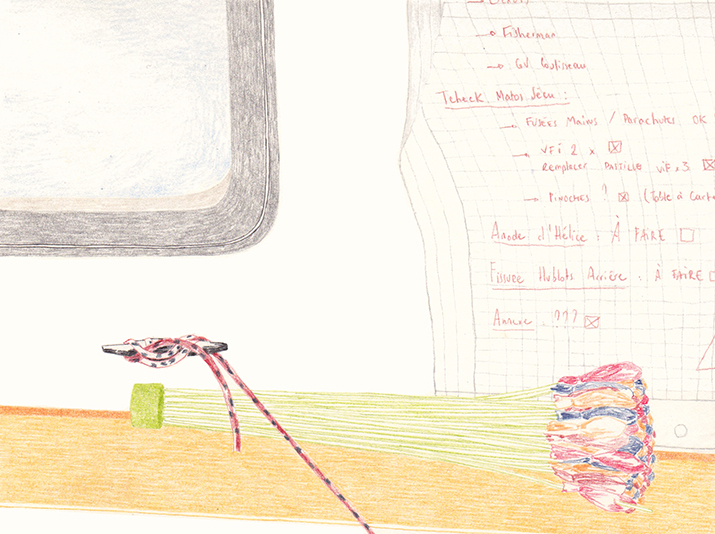 → Fisherman
→ GV Coulisseau
Tcheck Matos Sécu :
→ FUSÉES MAINS / PARACHUTES OK
→ VFI 2 x ☒
REMPLACER PASTILLE VIF x 3 ☒
→ PINOCHES ? ☒ (Table à Carte
Anode d'Hélice : À FAIRE ☐
Fissure Hublots Arrière : À FAIRE ☐
Annexe : ??? ☒